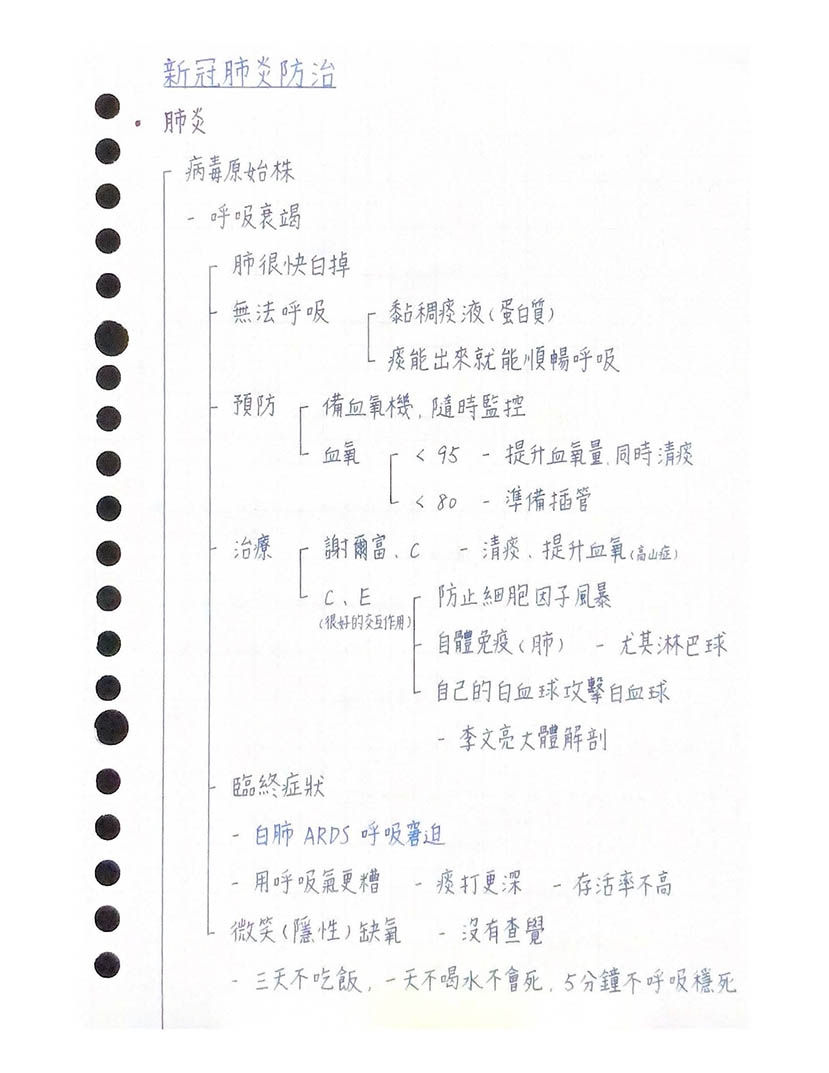 新冠肺炎防治
• 肺炎
病毒原始株
- 呼吸衰竭
肺很快白掉
- 無法呼吸 黏稠痰液(蛋白質)
痰能出來就能順暢呼吸
- 預防 備血氧機,隨時監控
血氧 < 95 - 提升血氧量,同時清痰
< 80 - 準備插管
- 治療 謝爾富、C - 清痰、提升血氧(高山症)
C、E 防止細胞因子風暴
(很好的交互作用)
- 自體免疫(肺) - 尤其淋巴球
自己的白血球攻擊白血球
- 李文亮大體解剖
- 臨終症狀
- 白肺 ARDS 呼吸窘迫
- 用呼吸氣更糟 - 痰打更深 - 存活率不高
微笑(隱性)缺氧 - 沒有查覺
- 三天不吃飯,一天不喝水不會死,5分鐘不呼吸穩死